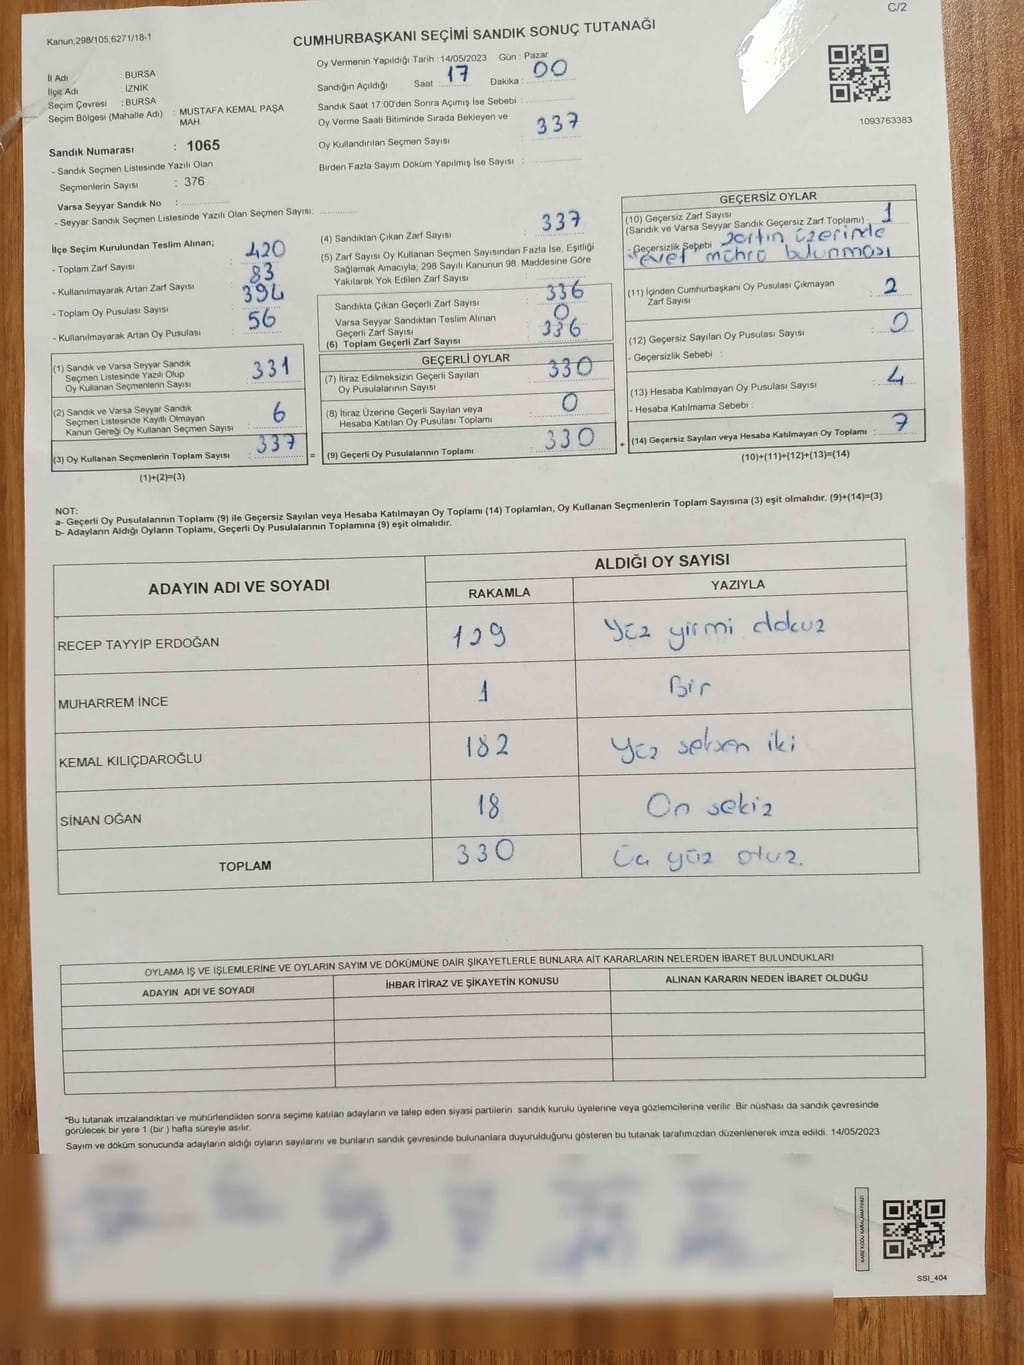 C/2
Kanun;298/105;6271/18-1
CUMHURBAŞKANI SEÇİMİ SANDIK SONUÇ TUTANAĞI
İl Adı : BURSA
İlçe Adı : İZNİK
Seçim Çevresi : BURSA
Seçim Bölgesi (Mahalle Adı) : MUSTAFA KEMAL PAŞA MAH.
Sandık Numarası : 1065
- Sandık Seçmen Listesinde Yazılı Olan
Seçmenlerin Sayısı : 376
Varsa Seyyar Sandık No :
- Seyyar Sandık Seçmen Listesinde Yazılı Olan Seçmen Sayısı:
Oy Vermenin Yapıldığı Tarih : 14/05/2023 Gün : Pazar
Sandığın Açıldığı Saat : 17 Dakika : 00
Sandık Saat 17:00'den Sonra Açımış İse Sebebi :
Oy Verme Saati Bitiminde Sırada Bekleyen ve
Oy Kullandırılan Seçmen Sayısı : 337
Birden Fazla Sayım Döküm Yapılmış İse Sayısı :
1093763383
İlçe Seçim Kurulundan Teslim Alınan;
- Toplam Zarf Sayısı : 420
- Kullanılmayarak Artan Zarf Sayısı : 83
- Toplam Oy Pusulası Sayısı : 394
- Kullanılmayarak Artan Oy Pusulası : 56
(1) Sandık ve Varsa Seyyar Sandık
Seçmen Listesinde Yazılı Olup
Oy Kullanan Seçmenlerin Sayısı : 331
(2) Sandık ve Varsa Seyyar Sandık
Seçmen Listesinde Kayıtlı Olmayan
Kanun Gereği Oy Kullanan Seçmen Sayısı : 6
(3) Oy Kullanan Seçmenlerin Toplam Sayısı : 337
(1)+(2)=(3)
(4) Sandıktan Çıkan Zarf Sayısı : 337
(5) Zarf Sayısı Oy Kullanan Seçmen Sayısından Fazla İse, Eşitliği
Sağlamak Amacıyla; 298 Sayılı Kanunun 98. Maddesine Göre
Yakılarak Yok Edilen Zarf Sayısı :
Sandıkta Çıkan Geçerli Zarf Sayısı : 336
Varsa Seyyar Sandıktan Teslim Alınan
Geçerli Zarf Sayısı : 0
(6) Toplam Geçerli Zarf Sayısı : 336
GEÇERLİ OYLAR
(7) İtiraz Edilmeksizin Geçerli Sayılan
Oy Pusulalarının Sayısı : 330
(8) İtiraz Üzerine Geçerli Sayılan veya
Hesaba Katılan Oy Pusulası Toplamı : 0
= (9) Geçerli Oy Pusulalarının Toplamı : 330
GEÇERSİZ OYLAR
(10) Geçersiz Zarf Sayısı
(Sandık ve Varsa Seyyar Sandık Geçersiz Zarf Toplamı) : 1
- Geçersizlik Sebebi : zarfın üzerinde
"evet" mührü bulunması
(11) İçinden Cumhurbaşkanı Oy Pusulası Çıkmayan
Zarf Sayısı : 2
(12) Geçersiz Sayılan Oy Pusulası Sayısı : 0
- Geçersizlik Sebebi :
(13) Hesaba Katılmayan Oy Pusulası Sayısı : 4
- Hesaba Katılmama Sebebi :
+ (14) Geçersiz Sayılan veya Hesaba Katılmayan Oy Toplamı : 7
(10)+(11)+(12)+(13)=(14)
NOT:
a- Geçerli Oy Pusulalarının Toplamı (9) ile Geçersiz Sayılan veya Hesaba Katılmayan Oy Toplamı (14) Toplamları, Oy Kullanan Seçmenlerin Toplam Sayısına (3) eşit olmalıdır. (9)+(14)=(3)
b- Adayların Aldığı Oyların Toplamı, Geçerli Oy Pusulalarının Toplamına (9) eşit olmalıdır.
ADAYIN ADI VE SOYADI ALDIĞI OY SAYISI
RAKAMLA YAZIYLA
RECEP TAYYİP ERDOĞAN 129 Yüz yirmi dokuz
MUHARREM İNCE 1 Bir
KEMAL KILIÇDAROĞLU 182 Yüz seksen iki
SİNAN OĞAN 18 On sekiz
TOPLAM 330 Üç yüz otuz.
OYLAMA İŞ VE İŞLEMLERİNE VE OYLARIN SAYIM VE DÖKÜMÜNE DAİR ŞİKAYETLERLE BUNLARA AİT KARARLARIN NELERDEN İBARET BULUNDUKLARI
ADAYIN ADI VE SOYADI İHBAR İTİRAZ VE ŞİKAYETİN KONUSU ALINAN KARARIN NEDEN İBARET OLDUĞU
*Bu tutanak imzalandıktan ve mühürlendikten sonra seçime katılan adayların ve talep eden siyasi partilerin sandık kurulu üyelerine veya gözlemcilerine verilir .Bir nüshası da sandık çevresinde
görülecek bir yere 1 (bir ) hafta süreyle asılır.
Sayım ve döküm sonucunda adayların aldığı oyların sayılarını ve bunların sandık çevresinde bulunanlara duyurulduğunu gösteren bu tutanak tarafımızdan düzenlenerek imza edildi. 14/05/2023
KARE KODU KARALAMAYINIZ!
SSİ_404